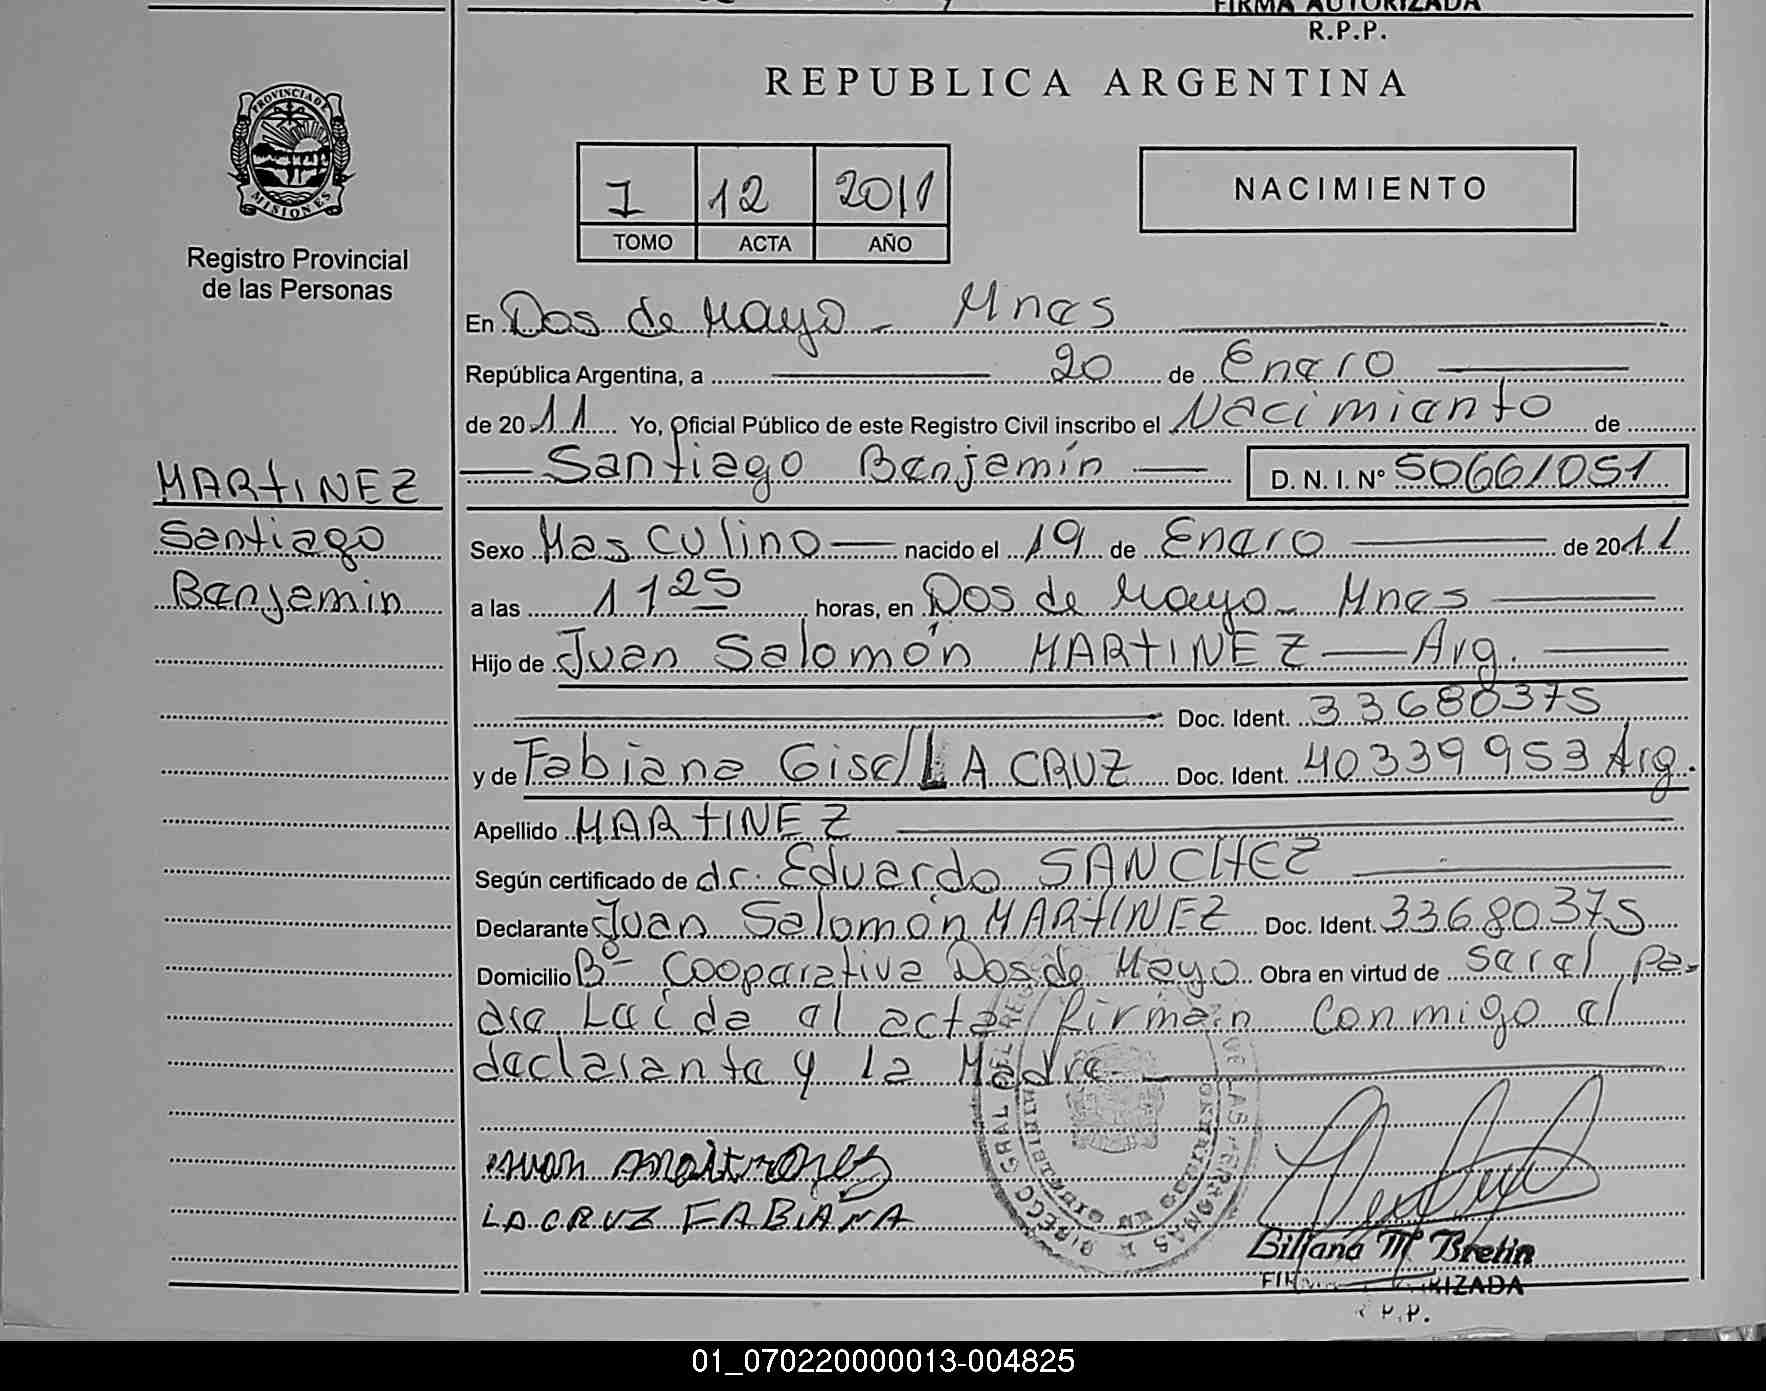 FIRMA AUTORIZADA
R.P.P.
REPUBLICA ARGENTINA
PROVINCIA DE MISIONES
Registro Provincial
de las Personas
I 12 2011
TOMO ACTA AÑO
NACIMIENTO
En Dos de Mayo - Mnes
República Argentina, a 20 de Enero
de 2011 Yo, Oficial Público de este Registro Civil inscribo el Nacimiento de
Santiago Benjamín D. N. I. Nº 50661051
MARTINEZ
Santiago
Benjamin
Sexo Masculino nacido el 19 de Enero de 2011
a las 1125 horas, en Dos de Mayo - Mnes
Hijo de Juan Salomón MARTINEZ — Arg.
Doc. Ident. 33680375
y de Fabiana Gisel LA CRUZ Doc. Ident. 40339953 Arg.
Apellido MARTINEZ
Según certificado de dr. Eduardo SANCHEZ
Declarante Juan Salomón MARTINEZ Doc. Ident. 33680375
Domicilio Bº Cooperativa Dos de Mayo Obra en virtud de ser el pa-
dre Leída el acta firman conmigo el
declarante y la Madre
LA CRUZ FABIANA
Giliana Mª Bretin
FIRMA AUTORIZADA
R.P.P.
01_070220000013-004825